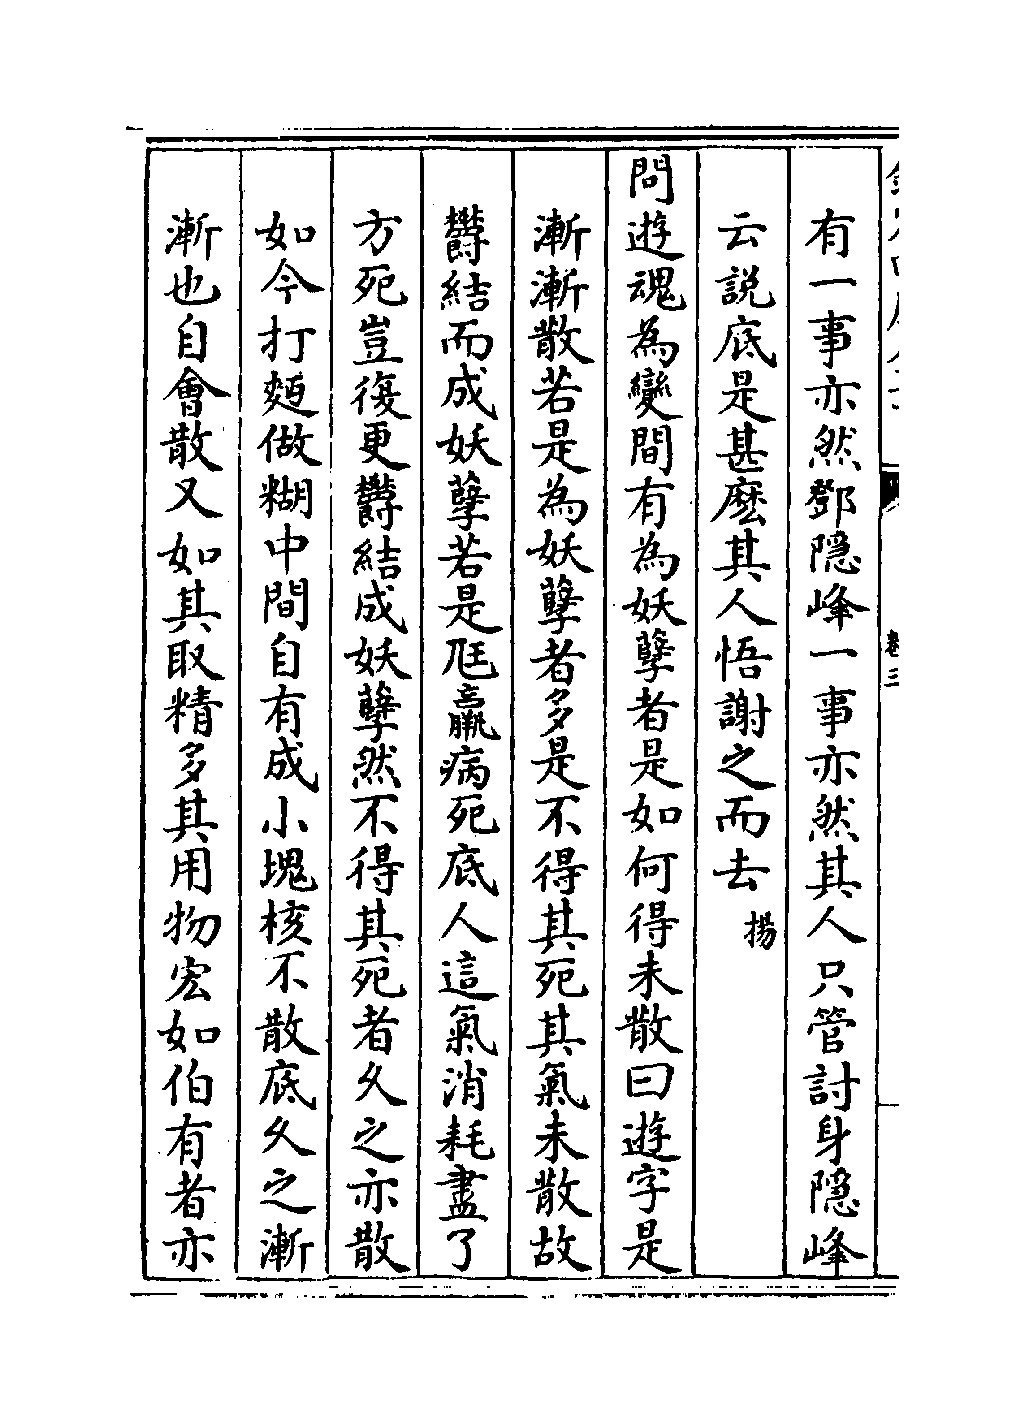 有一事亦然鄧隠峰一事亦然其人只管討身隠峰
云説底是甚麽其人悟謝之而去揚
問遊魂為變間有為妖孽者是如何得未散曰遊字是
漸漸散若是為妖孽者多是不得其死其氣未散故
鬱結而成妖孽若是尫羸病死底人這氣消耗盡了
方死豈復更鬱結成妖孽然不得其死者久之亦散
如今打麪做糊中間自有成小塊核不散底久之漸
漸也自會散又如其取精多其用物宏如伯有者亦
卷三